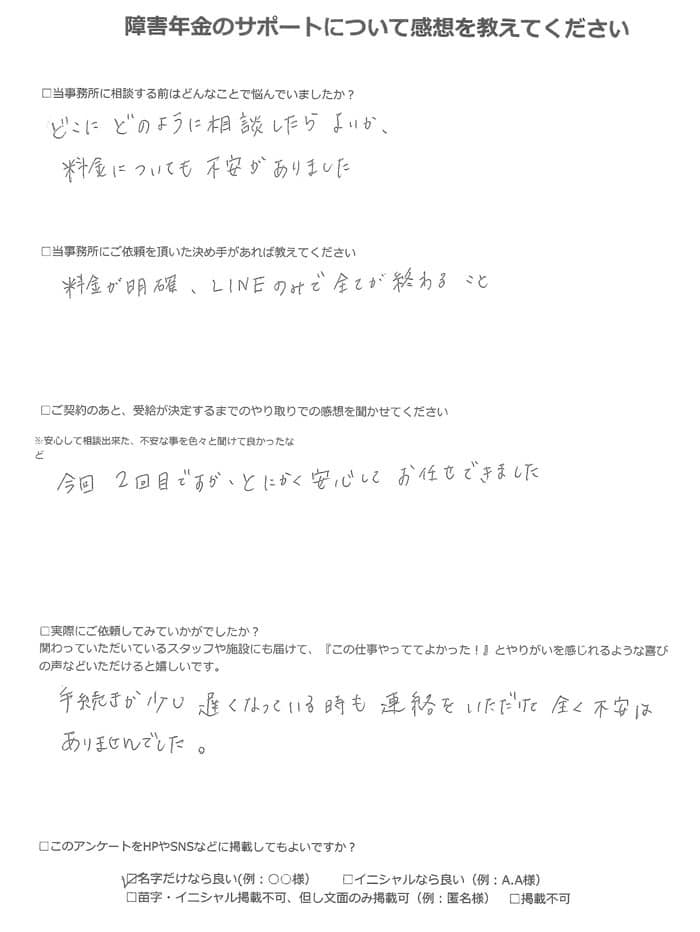 障害年金のサポートについて感想を教えてください
□当事務所に相談する前はどんなことで悩んでいましたか？
どこに どのように相談したら よいか、
料金についても 不安が ありました
□当事務所にご依頼を頂いた決め手があれば教えてください
料金が明確、LINEのみで全てが終わること
□ご契約のあと、受給が決定するまでのやり取りでの感想を聞かせてください
※安心して相談出来た、不安な事を色々と聞けて良かったな
ど
今回 2回目ですが、とにかく安心して お任せできました
□実際にご依頼してみていかがでしたか？
関わっていただいているスタッフや施設にも届けて、『この仕事やっててよかった！』とやりがいを感じれるような喜び
の声などいただけると嬉しいです。
手続きが少し 遅くなっている時も 連絡をいただけて 全く不安は
ありませんでした。
□このアンケートをHPやSNSなどに掲載してもよいですか？
☑名字だけなら良い(例：〇〇様） □イニシャルなら良い（例：A.A様）
□苗字・イニシャル掲載不可、但し文面のみ掲載可（例：匿名様） □掲載不可